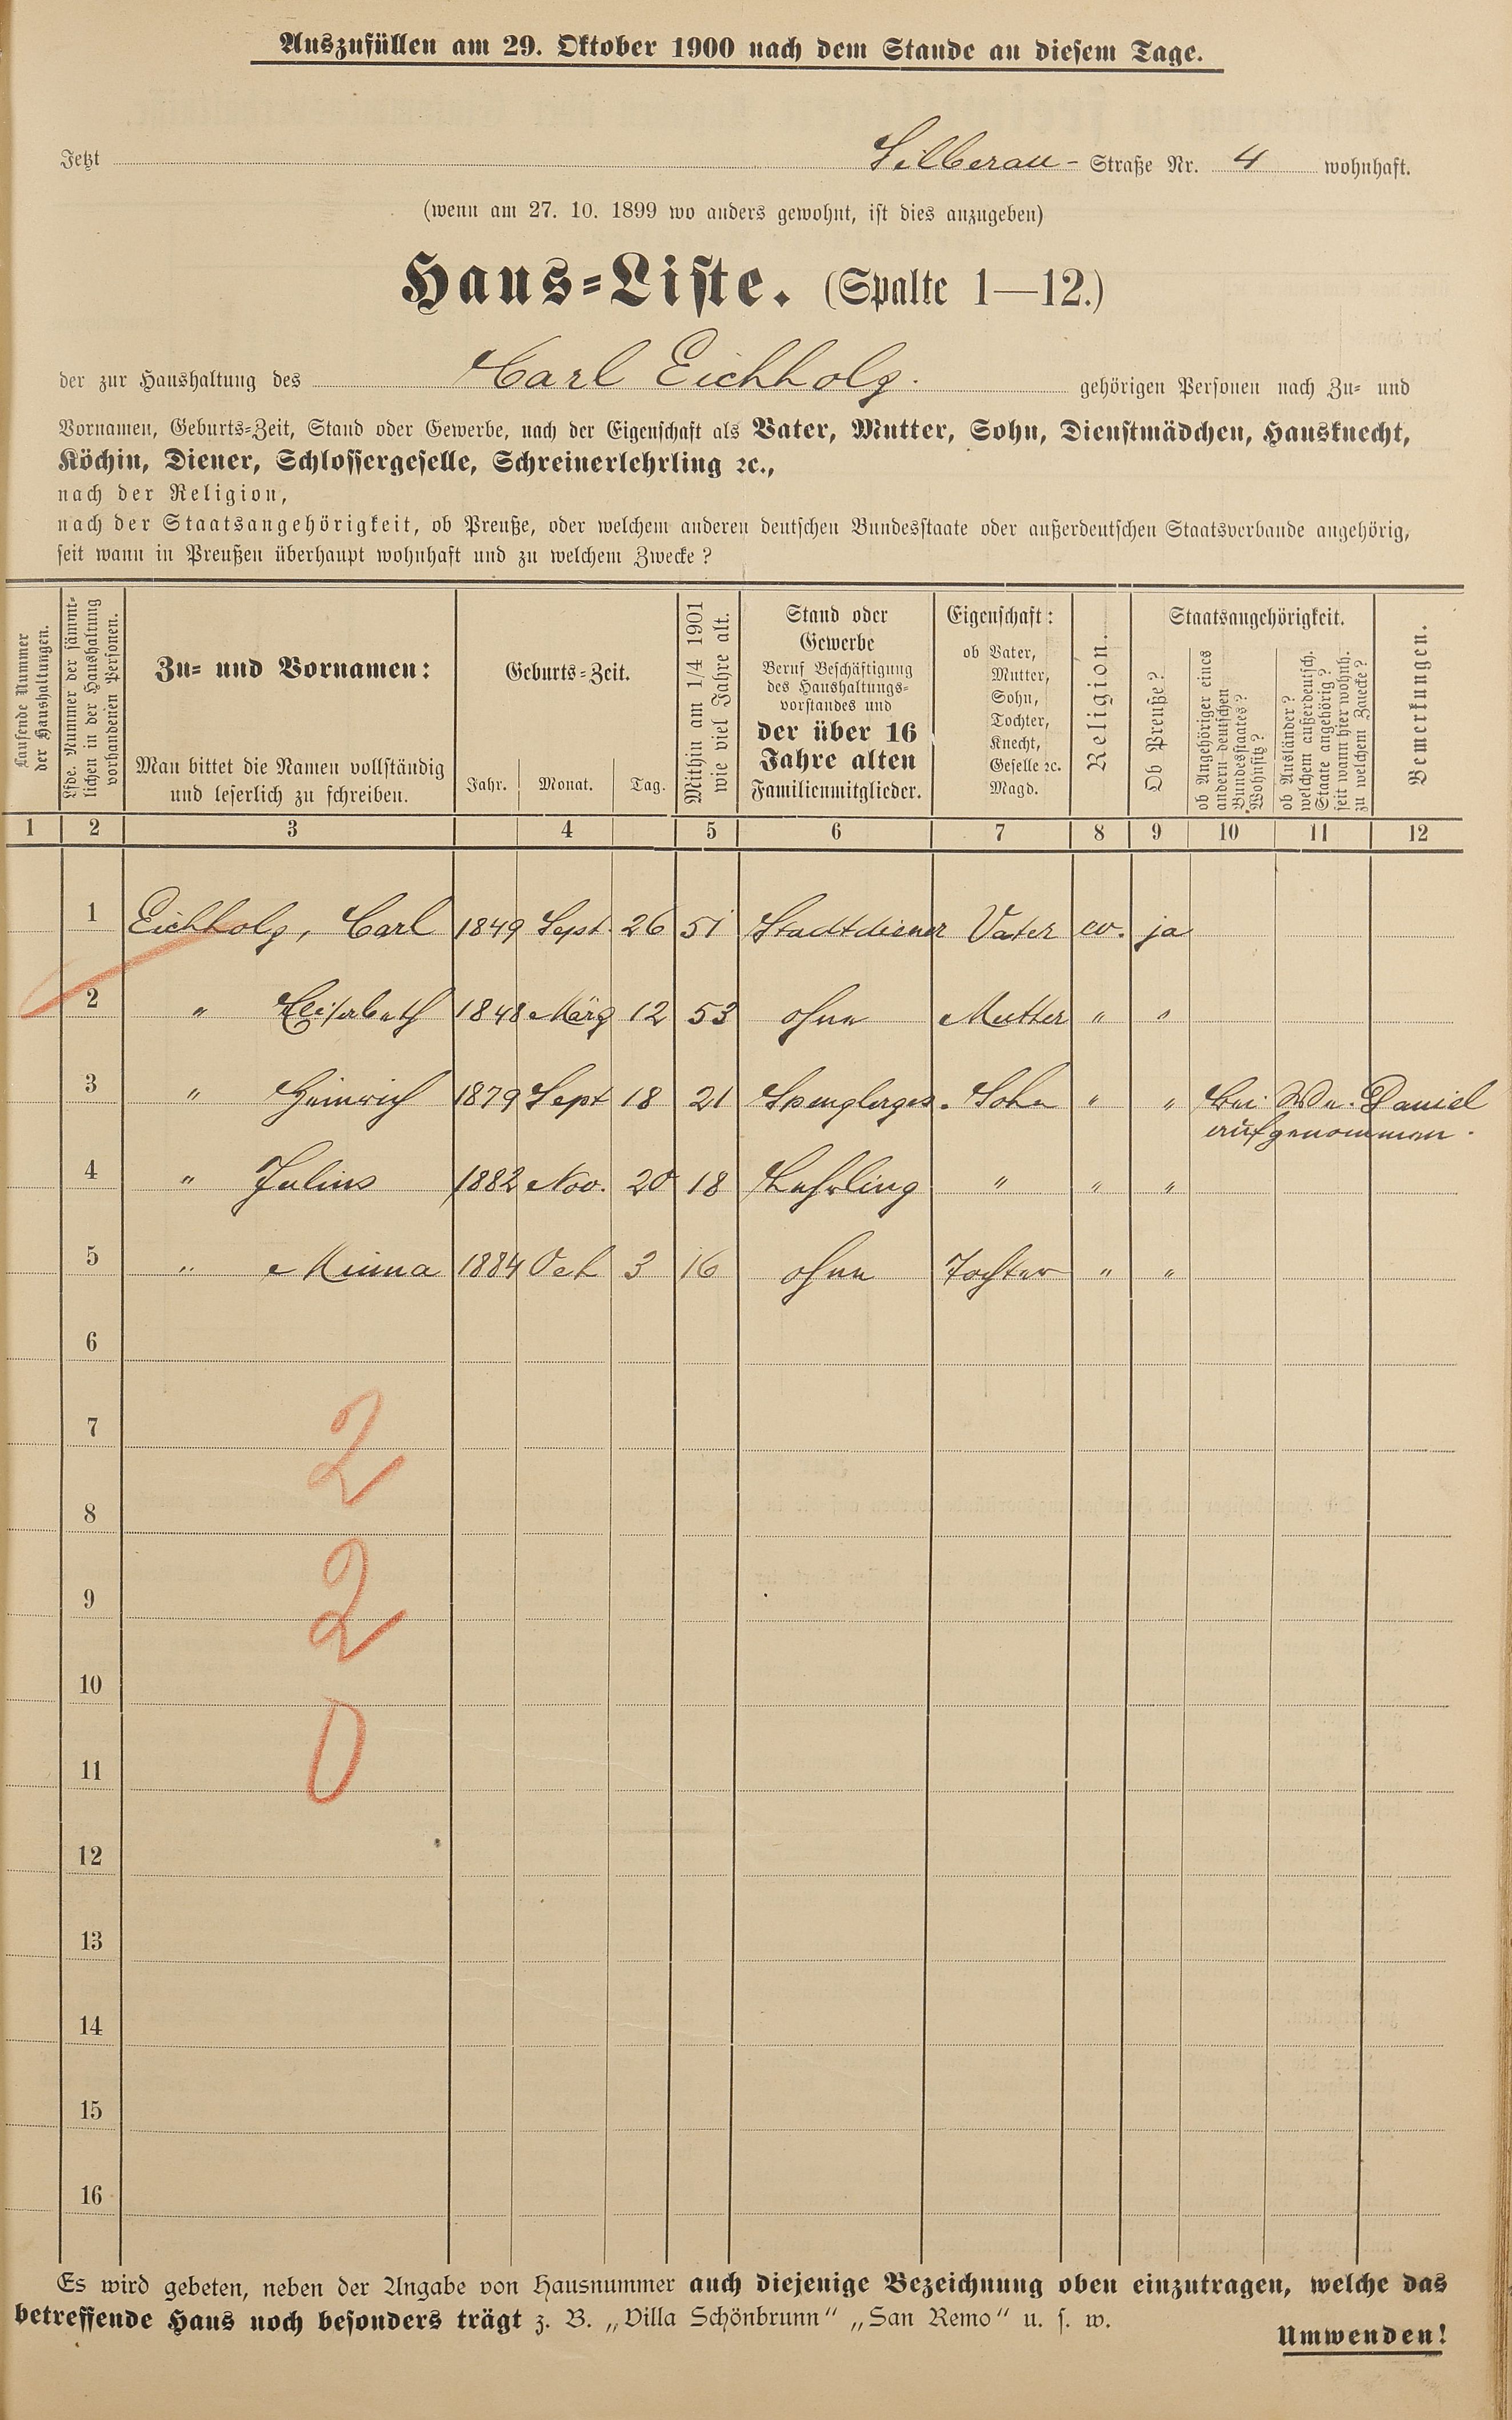 Auszufüllen am 29. Oktober 1900 nach dem Stande an diesem Tage.
Jetzt Silberau- Straße Nr. 4 wohnhaft.
(wenn am 27. 10. 1899 wo anders gewohnt, ist dies anzugeben)
Haus-Liste. (Spalte 1—12.)
der zur Haushaltung des Carl Eichholz. gehörigen Personen nach Zu- und
Vornamen, Geburts-Zeit, Stand oder Gewerbe, nach der Eigenschaft als Vater, Mutter, Sohn, Dienstmädchen, Hausknecht,
Köchin, Diener, Schlossergeselle, Schreinerlehrling ꝛc.,
nach der Religion,
nach der Staatsangehörigkeit, ob Preuße, oder welchem anderen deutschen Bundesstaate oder außerdeutschen Staatsverbande angehörig,
seit wann in Preußen überhaupt wohnhaft und zu welchem Zwecke?
Laufende Nummer
der Haushaltungen.
Lfde. Nummer der sämmt-
lichen in der Haushaltung
vorhandenen Personen.
Zu- und Vornamen:
Man bittet die Namen vollständig
und leserlich zu schreiben.
Geburts-Zeit.
Jahr. Monat. Tag.
Mithin am 1/4 1901
wie viel Jahre alt.
Stand oder
Gewerbe
Beruf Beschäftigung
des Haushaltungs-
vorstandes und
der über 16
Jahre alten
Familienmitglieder.
Eigenschaft:
ob Vater,
Mutter,
Sohn,
Tochter,
Knecht,
Geselle ꝛc.
Magd.
Religion.
Staatsangehörigkeit.
Ob Preuße?
ob Angehöriger eines
andern deutschen
Bundesstaates?
Wohnsitz?
ob Ausländer?
welchem außerdeutsch.
Staate angehörig?
seit wann hier wohnh.
zu welchem Zwecke?
Bemerkungen.
1 2 3 4 5 6 7 8 9 10 11 12
1 Eichholz, Carl 1849 Sept. 26 51 Stadtdiener Vater ev. ja
2 " Elisabeth 1848 März 12 53 ohne Mutter " "
3 " Heinrich 1879 Sept 18 21 Spenglerges. Sohn " " bei Daniel
aufgenommen.
4 " Julius 1882 Nov. 20 18 Lehrling " " "
5 " Minna 1884 Oct 3 16 ohne Tochter " "
6
7
2
8
9
2
10
11
0
12
13
14
15
16
Es wird gebeten, neben der Angabe von Hausnummer auch diejenige Bezeichnung oben einzutragen, welche das
betreffende Haus noch besonders trägt z. B. „Villa Schönbrunn“ „San Remo“ u. s. w.
Umwenden!